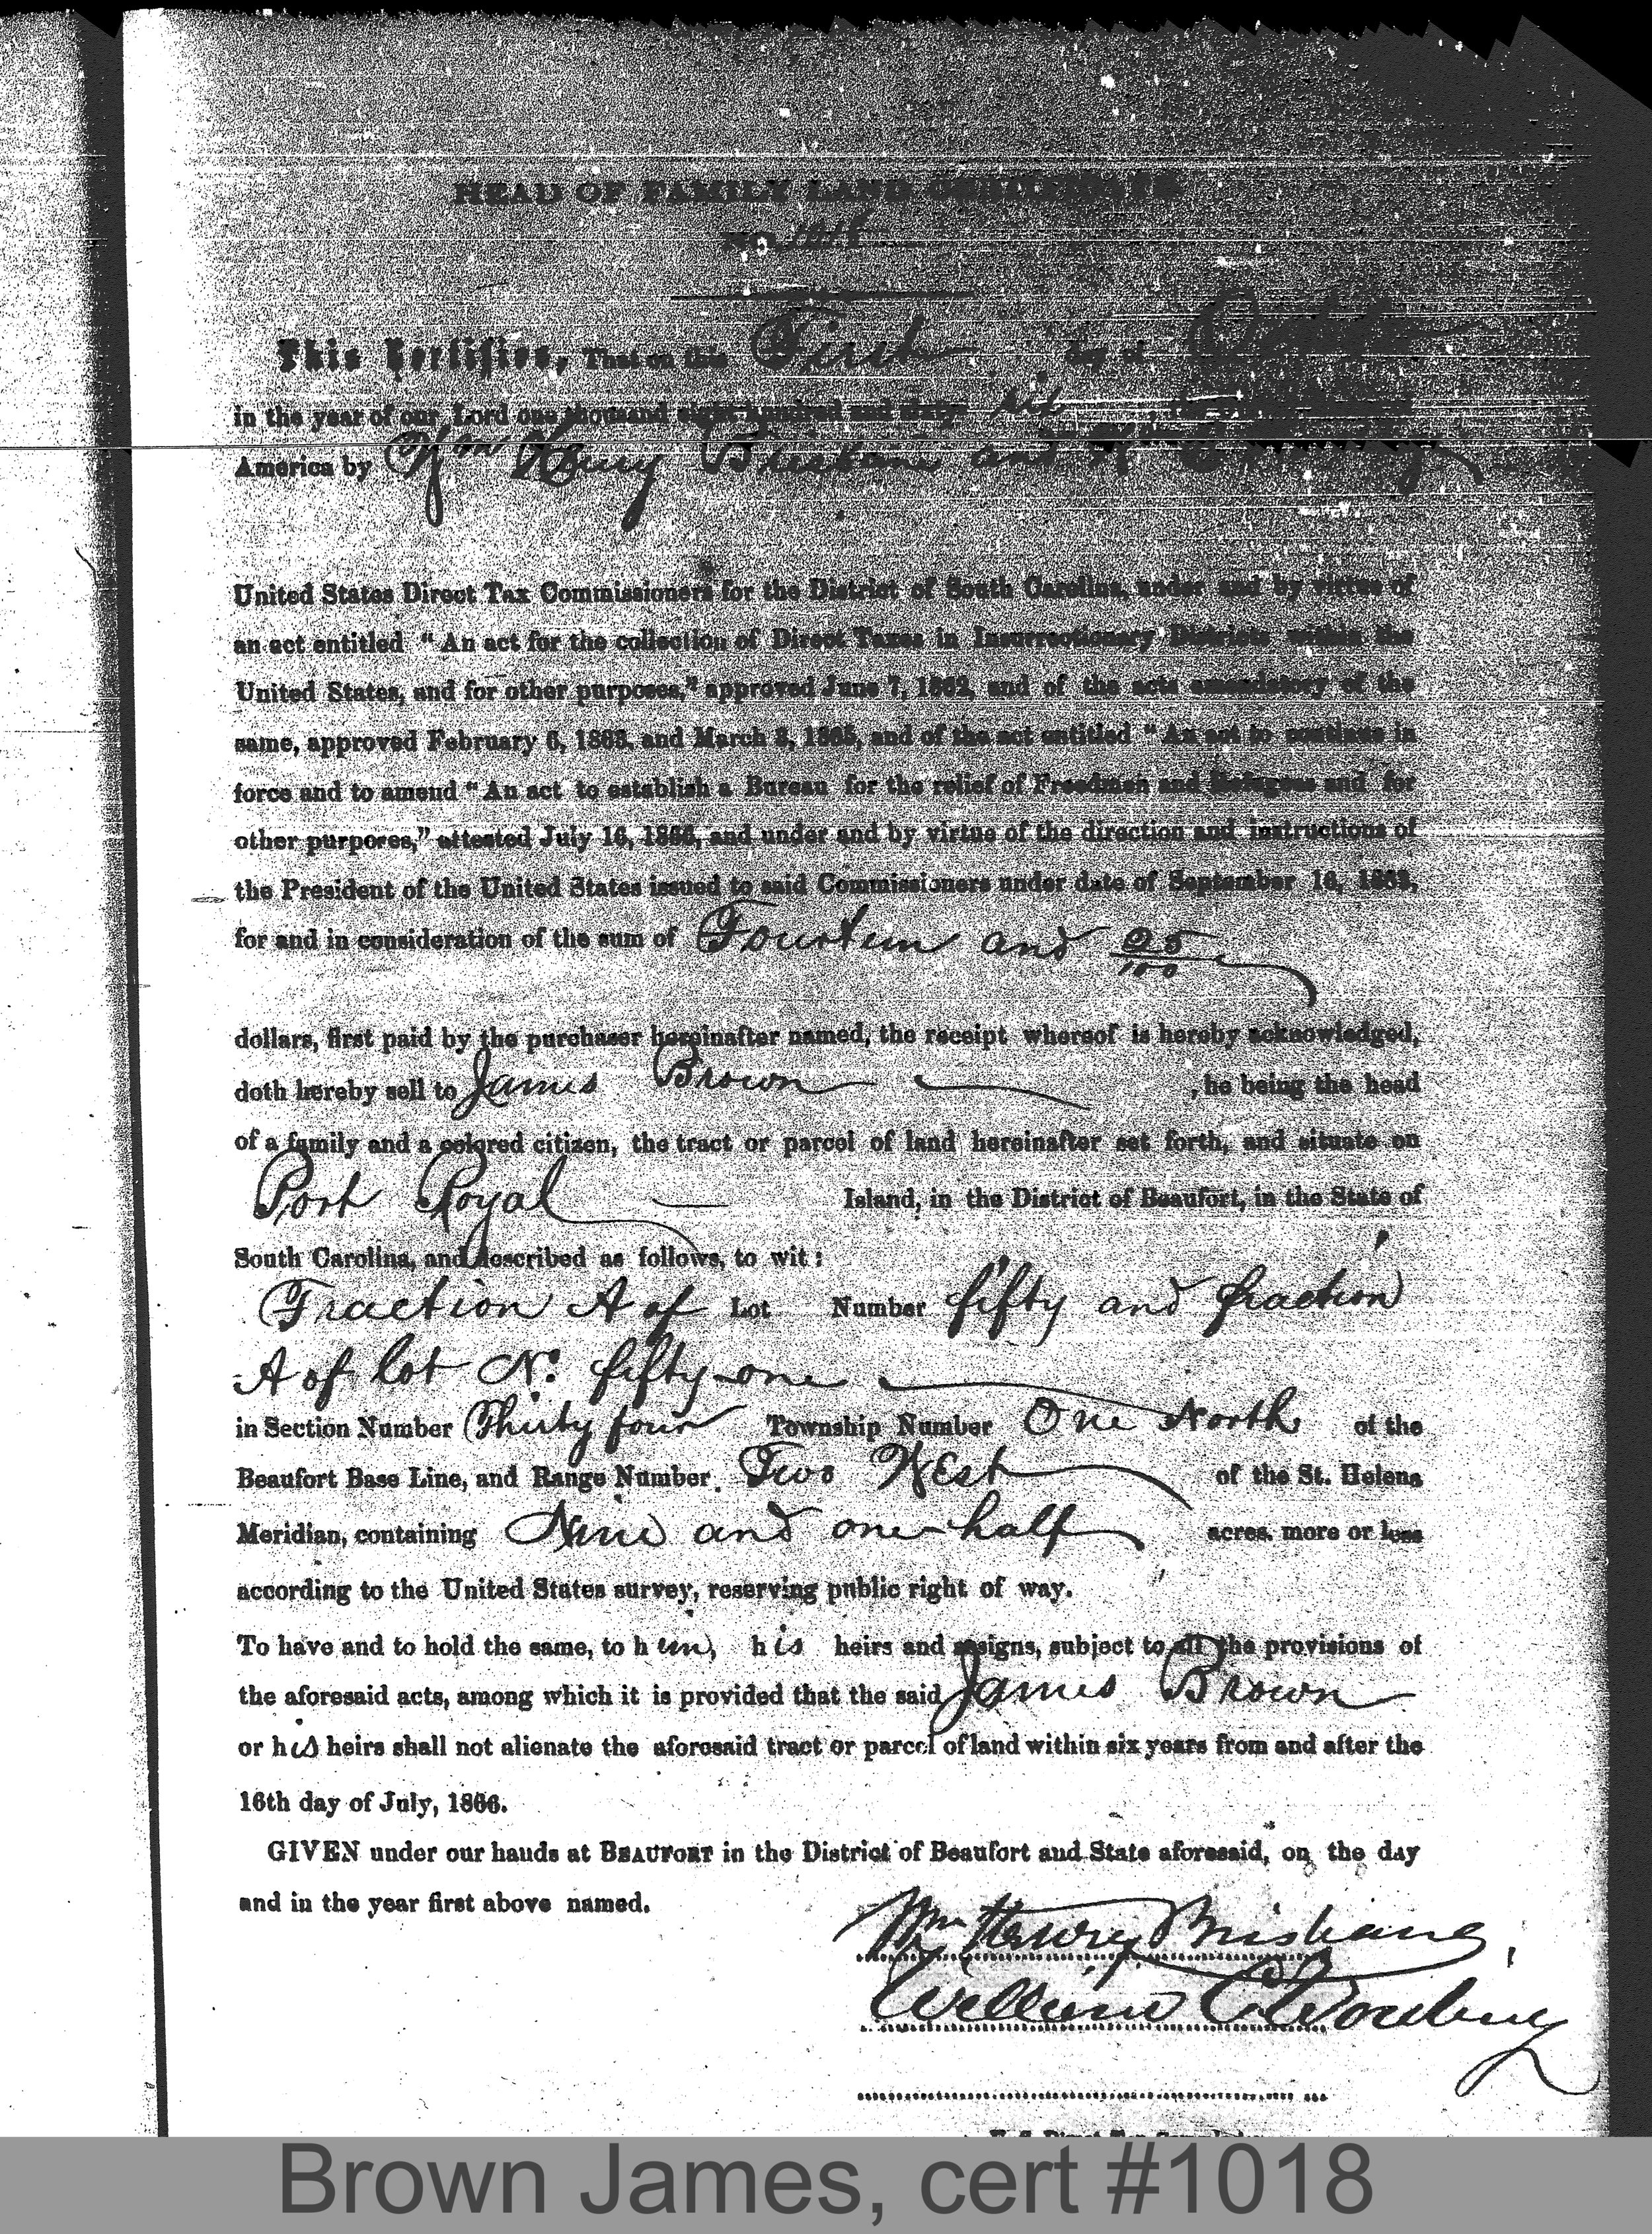 HEAD OF FAMILY LAND CERTIFICATE
NO. 1018
This Certifies, That on this First day of
in the year of our Lord one thousand eight hundred and sixty six
America by Wm Henry Brisbane and
United States Direct Tax Commissioners for the District of South Carolina, under and by virtue of
an act entitled "An act for the collection of Direct Taxes in Insurrectionary Districts within the
United States, and for other purposes," approved June 7, 1862, and of the acts amendatory of the
same, approved February 6, 1863, and March 3, 1865, and of the act entitled "An act to continue in
force and to amend "An act to establish a Bureau for the relief of Freedmen and Refugees and for
other purposes," attested July 16, 1866, and under and by virtue of the direction and instructions of
the President of the United States issued to said Commissioners under date of September 16, 1863,
for and in consideration of the sum of Fourteen and 25/100
dollars, first paid by the purchaser hereinafter named, the receipt whereof is hereby acknowledged,
doth hereby sell to James Brown , he being the head
of a family and a colored citizen, the tract or parcel of land hereinafter set forth, and situate on
Port Royal Island, in the District of Beaufort, in the State of
South Carolina, and described as follows, to wit:
Fraction A of Lot Number fifty and fraction
A of lot No. fifty-one
in Section Number Thirty four Township Number One North of the
Beaufort Base Line, and Range Number Two West of the St. Helena
Meridian, containing Nine and one-half acres, more or less
according to the United States survey, reserving public right of way.
To have and to hold the same, to him, his heirs and assigns, subject to all the provisions of
the aforesaid acts, among which it is provided that the said James Brown
or his heirs shall not alienate the aforesaid tract or parcel of land within six years from and after the
16th day of July, 1866.
GIVEN under our hands at BEAUFORT in the District of Beaufort and State aforesaid, on the day
and in the year first above named.
Wm Henry Brisbane
William
Brown James, cert #1018